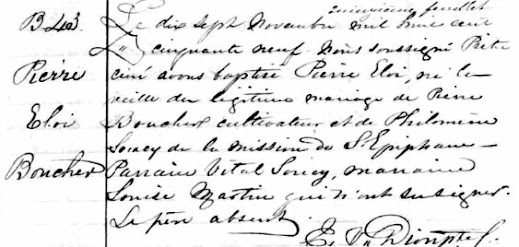 B43.
Pierre
Eloi
Boucher
Le dix sept Novembre mil huit cent
cinquante neuf, Nous soussigné Prêtre
curé avons baptisé Pierre Eloi, né la
veille du légitime mariage de Pierre
Boucher cultivateur et de Philomène
Soucy de la mission de St Epiphane –
Parrain Vital Soucy, marraine
Louise Martin qui n'ont su signer.
Le père absent.